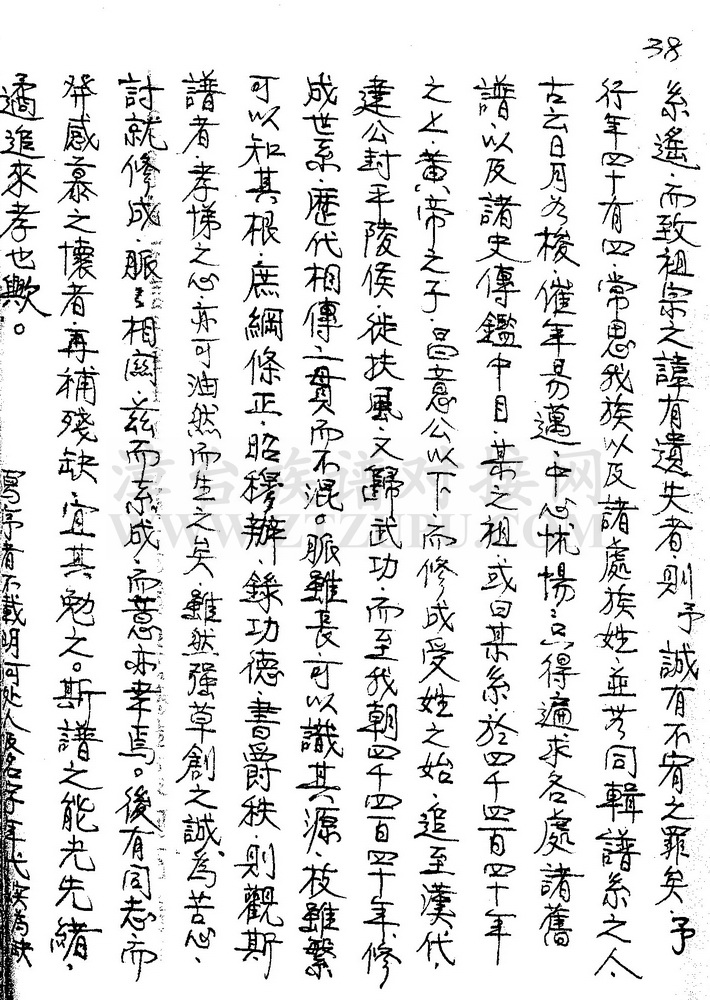 38
系遙·而致祖宗之諱有遺失者·則予誠有不宥之罪矣·予
行年四十有四常思我族以及諸處族姓·並若同輯譜系之人·
古云日月如梭·催年易邁·中心忧惕·只得遍求各處諸舊
譜·以及諸史傳鑑中目·某之祖·或曰某系·於四千四百四十年
之上·黃帝之子·昌意公以下·而修成受姓之始·追至漢代·
建公封平陵侯·徙扶風·又歸武功·而至我朝四千四百四十年·修
成世系·歷代相傳·一貫而不混。脈雖長·可以識其源·枝雖繁
可以知其根·庶綱條正·昭穆辦·錄功德·書爵秩·則觀斯
譜者·孝悌之心·亦可油然而生之矣·雖然强草創之誠·為苦心·
討就修成·脈々相関·茲而系成·而意亦幸焉。後有同志·而
發感慕之懷者·再補殘缺·宜其勉之。斯譜之能光先緒·
遹追來孝也歟。
寫序者不載明何处人及名字年代
漳台族谱对接网
WWW.ZTZUPU.COM